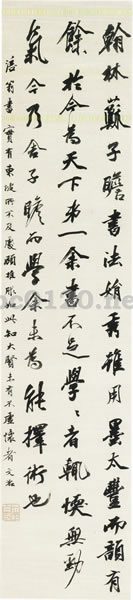 翰林蘇子瞻書法娟秀雖用墨太豐而韻有
餘於今為天下第一余書不足學學者輒愞無勁
氣今乃舍子瞻而學余未為能擇術也
涪翁書實有東坡所不及處顧推服如此知大賢未有不虛懷者